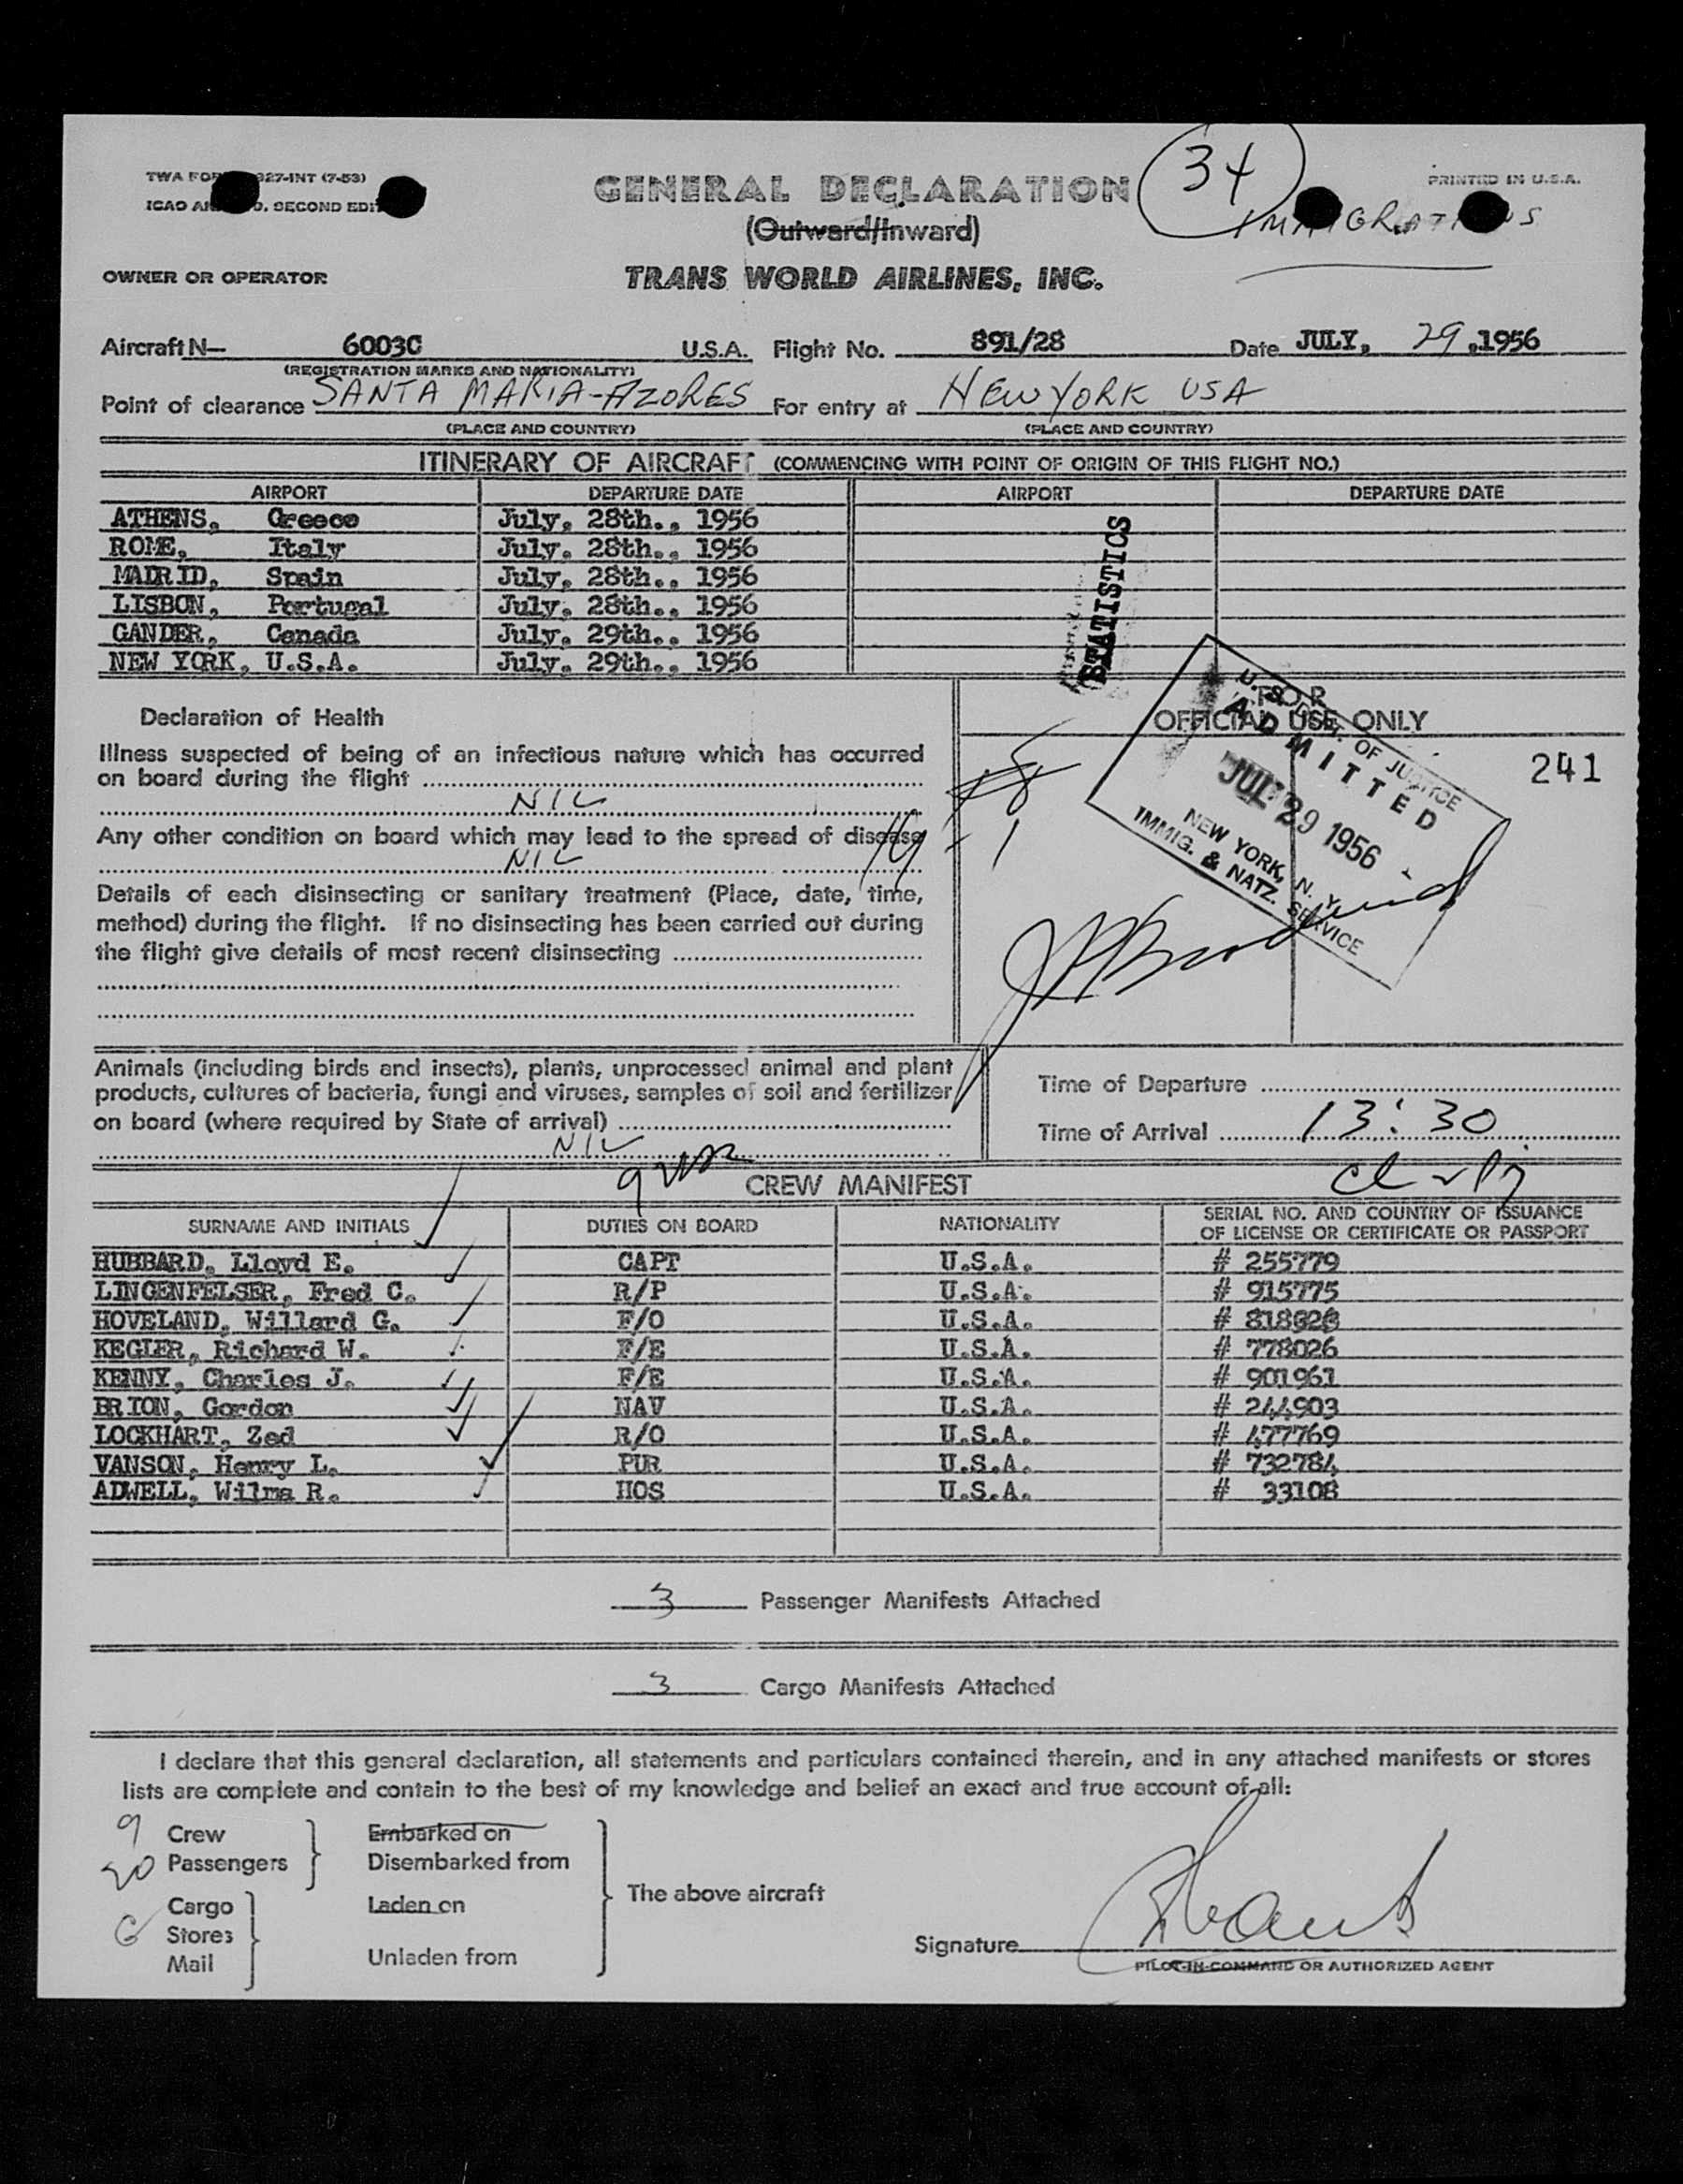 TWA FOR 327-INT (7-53)
ICAO AN O. SECOND EDIT
GENERAL DECLARATION
(Outward/Inward)
34
IMMIGRATIONS
PRINTED IN U.S.A.
OWNER OR OPERATOR
TRANS WORLD AIRLINES, INC.
Aircraft N— 6003C U.S.A. Flight No. 891/28 Date JULY, 29, 1956
(REGISTRATION MARKS AND NATIONALITY)
Point of clearance SANTA MARIA-AZORES For entry at NEW YORK USA
(PLACE AND COUNTRY) (PLACE AND COUNTRY)
ITINERARY OF AIRCRAFT (COMMENCING WITH POINT OF ORIGIN OF THIS FLIGHT NO.)
AIRPORT DEPARTURE DATE AIRPORT DEPARTURE DATE
ATHENS, Greece July. 28th., 1956
ROME, Italy July. 28th., 1956
MADRID, Spain July. 28th., 1956
LISBON, Portugal July. 28th., 1956
GANDER, Canada July. 29th., 1956
NEW YORK, U.S.A. July. 29th., 1956
STATISTICS
Declaration of Health
Illness suspected of being of an infectious nature which has occurred
on board during the flight
NIL
Any other condition on board which may lead to the spread of disease
NIL
Details of each disinsecting or sanitary treatment (Place, date, time,
method) during the flight. If no disinsecting has been carried out during
the flight give details of most recent disinsecting
FOR
OFFICIAL USE ONLY
241
U. S. DEPT. OF JUSTICE
ADMITTED
JUL 29 1956
NEW YORK, N. Y.
IMMIG. & NATZ. SERVICE
Animals (including birds and insects), plants, unprocessed animal and plant
products, cultures of bacteria, fungi and viruses, samples of soil and fertilizer
on board (where required by State of arrival)
NIL
Time of Departure
Time of Arrival 13:30
CREW MANIFEST
SURNAME AND INITIALS DUTIES ON BOARD NATIONALITY SERIAL NO. AND COUNTRY OF ISSUANCE
OF LICENSE OR CERTIFICATE OR PASSPORT
HUBBARD, Lloyd E. CAPT U.S.A. # 255779
LINGENFELSER, Fred C. R/P U.S.A. # 915775
HOVELAND, Willard G. F/O U.S.A. #
KEGLER, Richard W. F/E U.S.A. # 778026
KENNY, Charles J. F/E U.S.A. # 901961
BRION, Gordon NAV U.S.A. # 244903
LOCKHART, Zed R/O U.S.A. # 477769
VANSON, Henry L. PUR U.S.A. # 732784
ADWELL, Wilma R. HOS U.S.A. # 33108
3 Passenger Manifests Attached
3 Cargo Manifests Attached
I declare that this general declaration, all statements and particulars contained therein, and in any attached manifests or stores
lists are complete and contain to the best of my knowledge and belief an exact and true account of all:
9 Crew Embarked on
Passengers Disembarked from
Cargo Laden on The above aircraft
Stores
Mail Unladen from
Signature
PILOT-IN-COMMAND OR AUTHORIZED AGENT